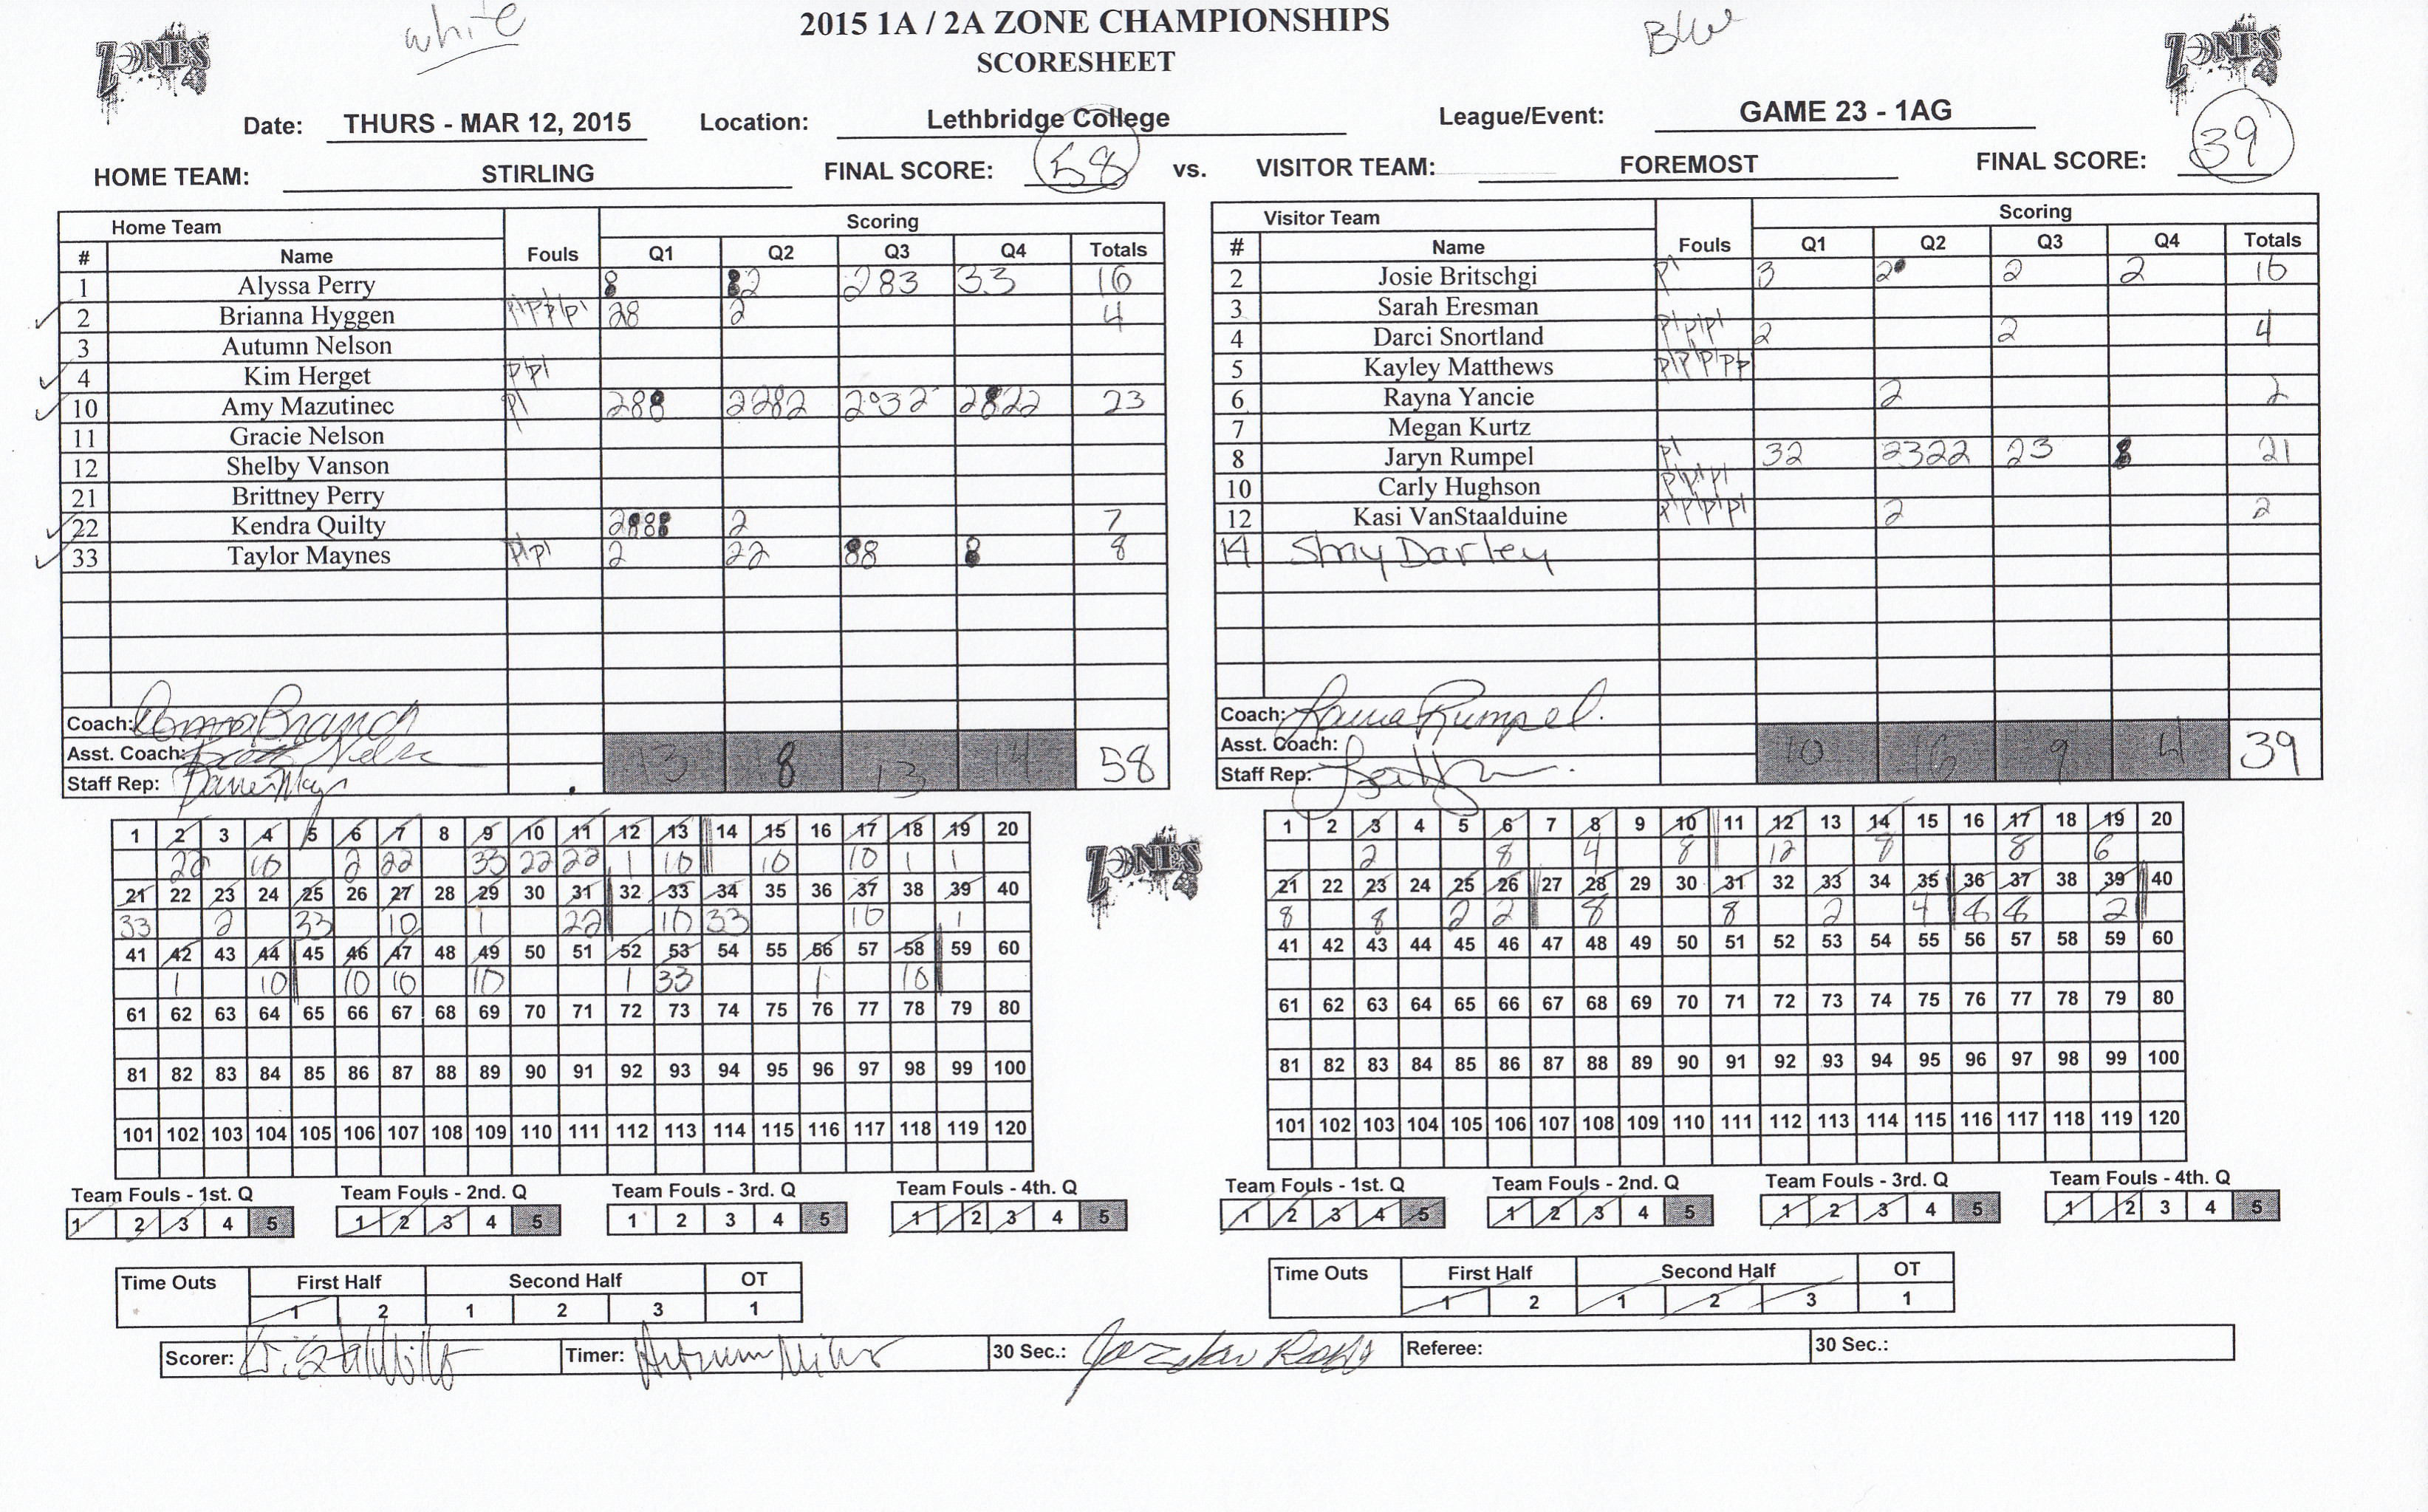 white
2015 1A / 2A ZONE CHAMPIONSHIPS
Blue
ZONES
SCORESHEET
ZONES
Date: THURS - MAR 12, 2015 Location: Lethbridge College League/Event: GAME 23 - 1AG
HOME TEAM: STIRLING FINAL SCORE: 58 vs. VISITOR TEAM: FOREMOST FINAL SCORE: 39
Home Team Fouls Scoring
# Name Q1 Q2 Q3 Q4 Totals
1 Alyssa Perry 283 33 16
2 Brianna Hyggen 28 2 4
3 Autumn Nelson
4 Kim Herget
10 Amy Mazutinec 288 2282 2822 23
11 Gracie Nelson
12 Shelby Vanson
21 Brittney Perry
22 Kendra Quilty 2888 2 7
33 Taylor Maynes 2 22 88 8 8
Coach:
Asst. Coach:
Staff Rep:
13 8 13 14 58
Visitor Team Fouls Scoring
# Name Q1 Q2 Q3 Q4 Totals
2 Josie Britschgi 3 2 2 2
3 Sarah Eresman
4 Darci Snortland 2 2 4
5 Kayley Matthews
6 Rayna Yancie 2 2
7 Megan Kurtz
8 Jaryn Rumpel 32 2322 23 8 21
10 Carly Hughson
12 Kasi VanStaalduine 2 2
14 Darley
Coach: Rumpel
Asst. Coach:
Staff Rep:
10 16 9 4 39
1 2 3 4 5 6 7 8 9 10 11 12 13 14 15 16 17 18 19 20
22 10 2 22 33 22 22 1 10 10 10 1 1
21 22 23 24 25 26 27 28 29 30 31 32 33 34 35 36 37 38 39 40
33 2 33 10 1 22 10 33 10 1
41 42 43 44 45 46 47 48 49 50 51 52 53 54 55 56 57 58 59 60
1 10 10 10 10 1 33 1 10
61 62 63 64 65 66 67 68 69 70 71 72 73 74 75 76 77 78 79 80
81 82 83 84 85 86 87 88 89 90 91 92 93 94 95 96 97 98 99 100
101 102 103 104 105 106 107 108 109 110 111 112 113 114 115 116 117 118 119 120
ZONES
1 2 3 4 5 6 7 8 9 10 11 12 13 14 15 16 17 18 19 20
2 8 4 8 12 8 8 6
21 22 23 24 25 26 27 28 29 30 31 32 33 34 35 36 37 38 39 40
8 8 2 2 8 8 2 4 8 8 2
41 42 43 44 45 46 47 48 49 50 51 52 53 54 55 56 57 58 59 60
61 62 63 64 65 66 67 68 69 70 71 72 73 74 75 76 77 78 79 80
81 82 83 84 85 86 87 88 89 90 91 92 93 94 95 96 97 98 99 100
101 102 103 104 105 106 107 108 109 110 111 112 113 114 115 116 117 118 119 120
Team Fouls - 1st. Q Team Fouls - 2nd. Q Team Fouls - 3rd. Q Team Fouls - 4th. Q
1 2 3 4 5 1 2 3 4 5 1 2 3 4 5 1 2 3 4 5
Team Fouls - 1st. Q Team Fouls - 2nd. Q Team Fouls - 3rd. Q Team Fouls - 4th. Q
1 2 3 4 5 1 2 3 4 5 1 2 3 4 5 1 2 3 4 5
Time Outs First Half Second Half OT
1 2 1 2 3 1
Time Outs First Half Second Half OT
1 2 1 2 3 1
Scorer: Timer: 30 Sec.: Referee: 30 Sec.: